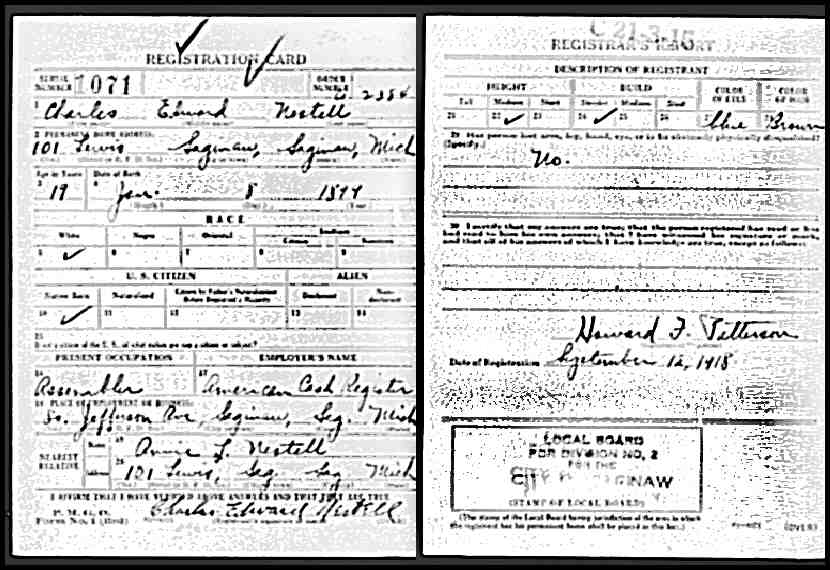 REGISTRATION CARD
SERIAL NUMBER 1071 ORDER NUMBER
Charles Edward Nestell
2 PERMANENT HOME ADDRESS:
101 Lewis, Saginaw, Saginaw, Mich
Age in Years Date of Birth
19 Jan. 8
RACE
White Negro Oriental Indian
5 ✓ 6 7 8 9
U. S. CITIZEN ALIEN
Native Born Naturalized Citizen by Father's Naturalization Before Registrant's Majority Declarant Non-declarant
10 ✓ 11 12 13 14
15
PRESENT OCCUPATION EMPLOYER'S NAME
Assembler American Cash Register
18 PLACE OF EMPLOYMENT OR BUSINESS:
So. Jefferson Ave, Saginaw, Sag. Mich
NEAREST RELATIVE Name Annie L. Nestell
Address 101 Lewis, Sag. Sag Mich
I AFFIRM THAT I HAVE VERIFIED ABOVE ANSWERS AND THAT THEY ARE TRUE
P. M. G. O.
Form No. 1 (Red)
Charles Edward Nestell
REGISTRAR'S REPORT
DESCRIPTION OF REGISTRANT
HEIGHT BUILD COLOR OF EYES COLOR OF HAIR
Tall Medium Short Slender Medium Stout
21 22 ✓ 23 24 ✓ 25 26 blue Brown
29 Has person lost arm, leg, hand, eye, or is he obviously physically disqualified?
(Specify.)
No.
30 I certify that my answers are true; that the person registered has read or has
had read to him his own answers; that I have witnessed his signature or mark,
and that all of his answers of which I have knowledge are true, except as follows:
Howard F. Patterson
Date of Registration September 12, 1918
LOCAL BOARD
FOR DIVISION NO. 2
FOR THE
CITY OF SAGINAW
(STAMP OF LOCAL BOARD)
(The stamp of the Local Board having jurisdiction of the area in which
the registrant has his permanent home shall be placed in this box.)
(OVER)